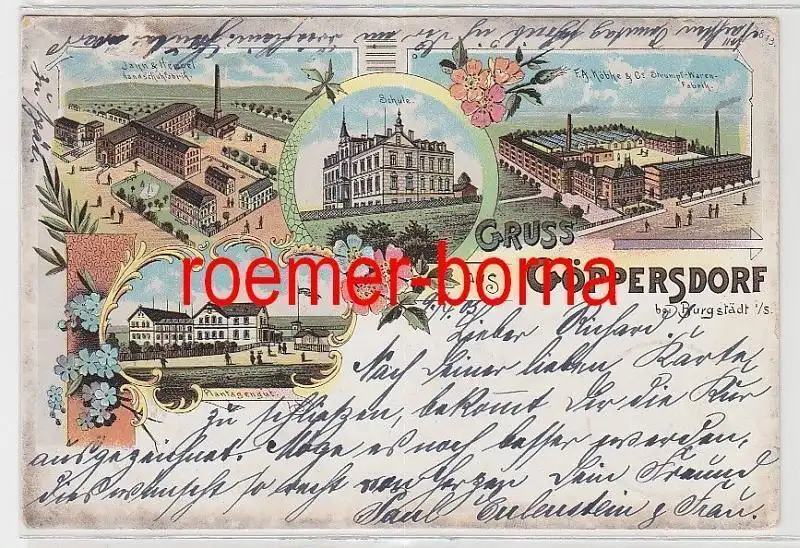 Jahn & Hessel
Handschuhfabrik.
Schule.
F.A. Köbke & Co. Strumpf-Waren-
Fabrik.
GRUSS
aus GÖPPERSDORF
bei Burgstädt i/S.
roemer-boma
Plantagengut.
Lieber Richard!
Nach Deiner lieben Karte
zu schließen, bekommt Dir die Kur
ausgezeichnet. Möge es noch besser werden,
dies wünscht so recht von Herzen Dein Freund
Paul Eulenstein & Frau.